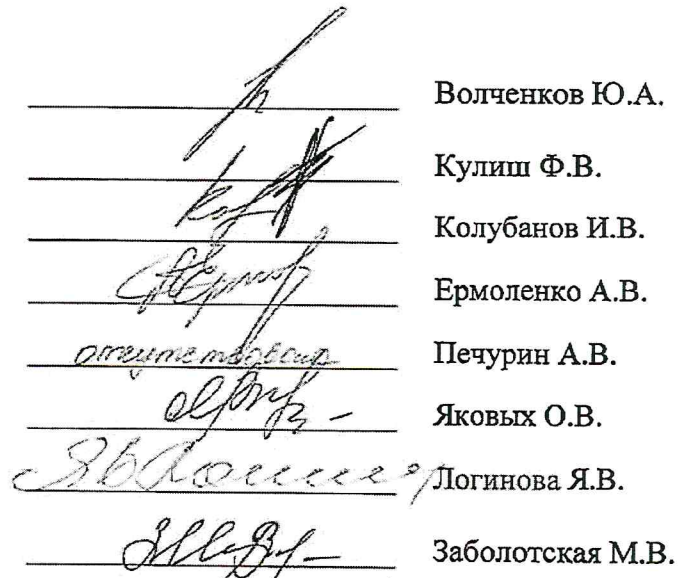 Волченков Ю.А.
Кулиш Ф.В.
Колубанов И.В.
Ермоленко А.В.
отсутствовал Печурин А.В.
Яковых О.В.
Логинова Я.В.
Заболотская М.В.